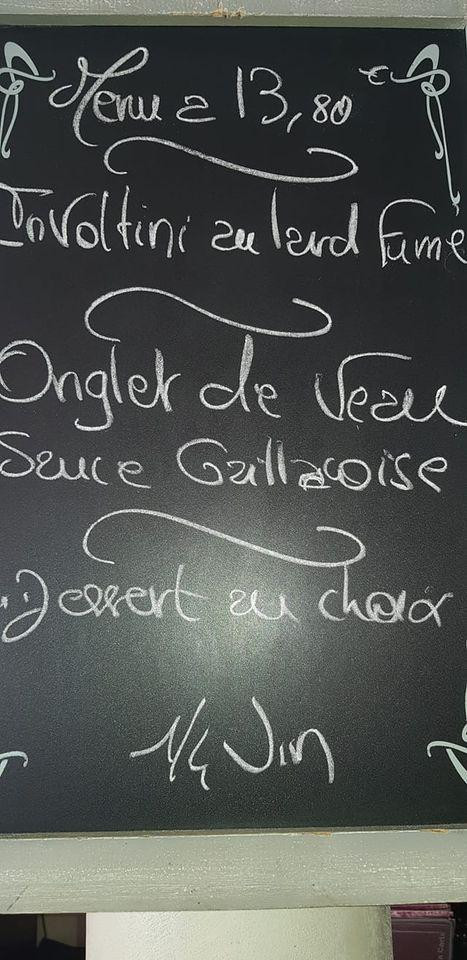 Menu a 13,80 €
Involtini au lard fumé
Onglet de Veau
Sauce Gaillacoise
Dessert au choix
1/4 Vin